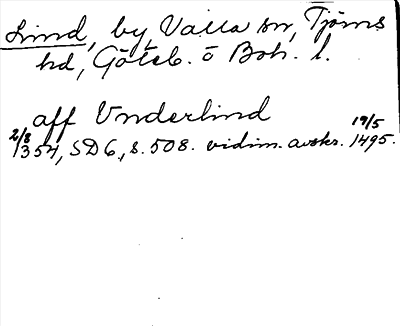 Lind, by, Valla sn, Tjörns
hd, Göteb. o Boh. l.
aff Vnderlind
2/8 1354, SD 6, s. 508. vidim. avskr. 19/5 1495.